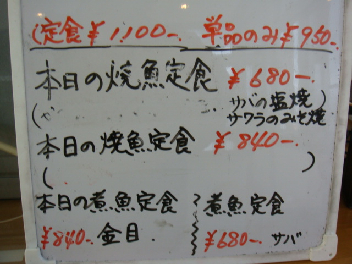 (定食¥1,100- 単品のみ¥950-
本日の焼魚定食 ¥680-
( サバの塩焼 )
サワラのみそ焼
本日の焼魚定食 ¥840-
( )
本日の煮魚定食 煮魚定食
¥840- 金目 ¥680- サバ